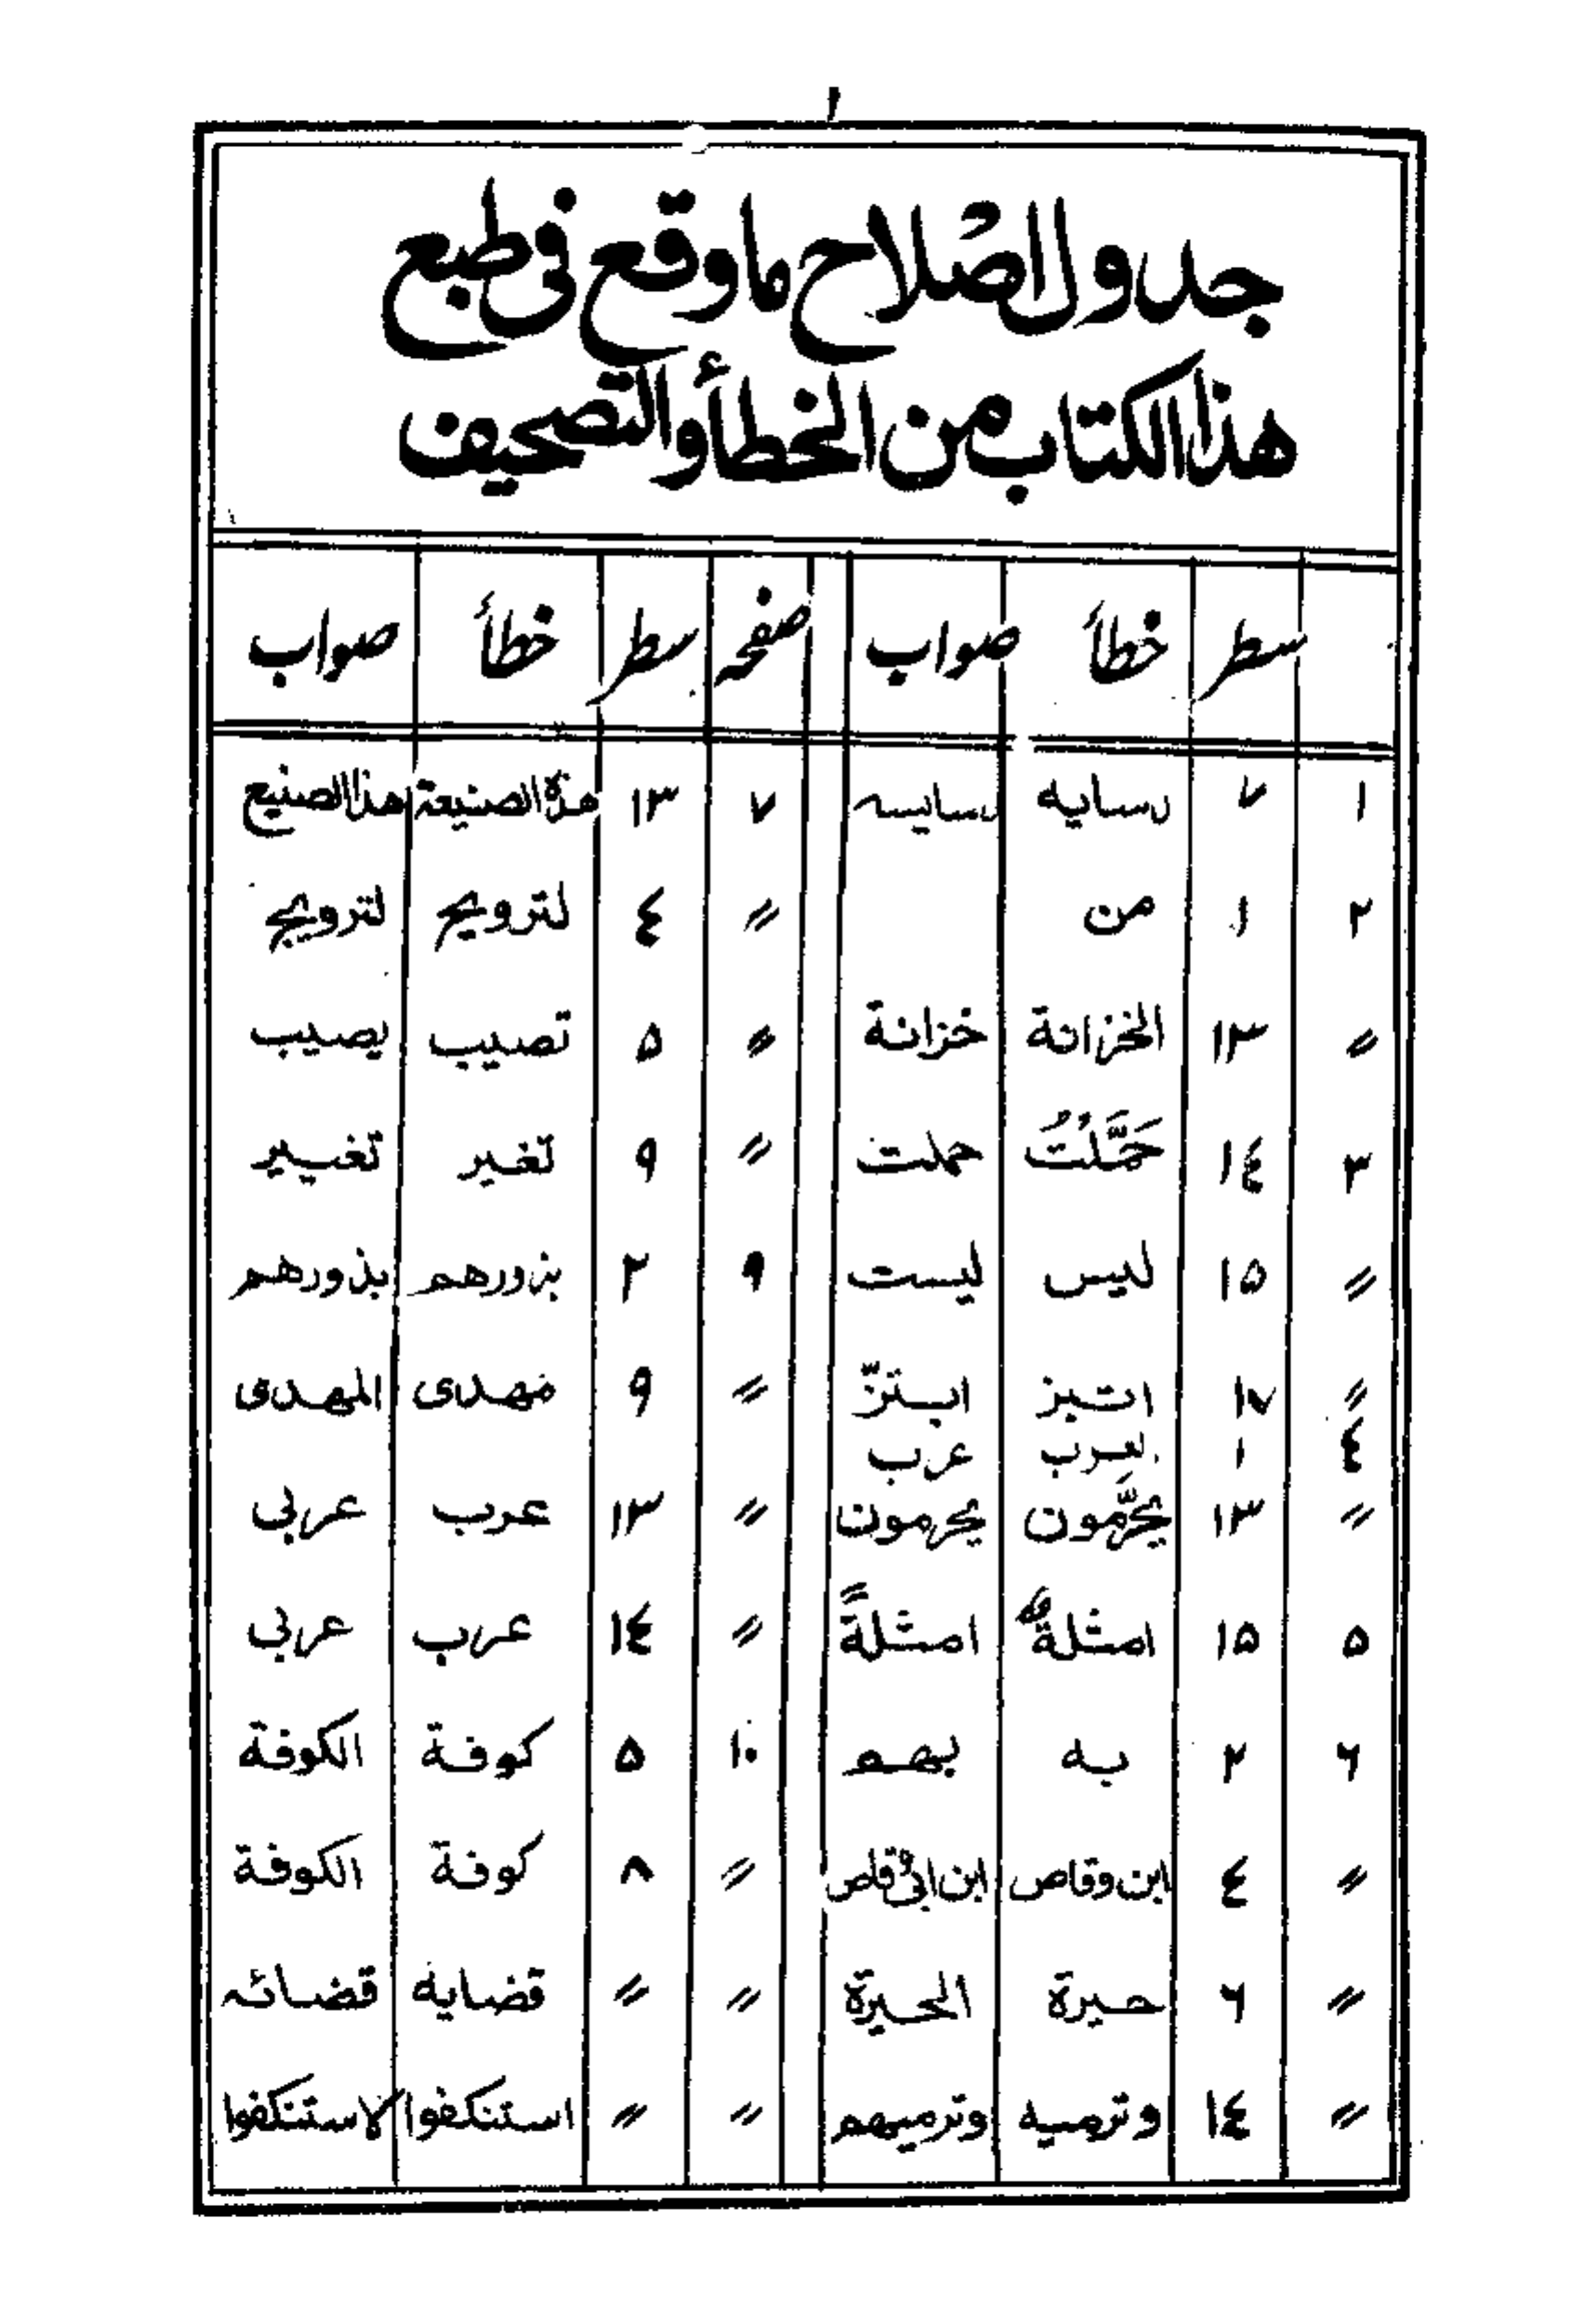 ١
جدول اصلاح ما وقع في طبع
هذا الكتاب من الخطأ والتصحيف
سطر خطأ صواب صفحه سطر خطأ صواب
١ ٧ دسايه دسايسه ٧ ١٣ هذة الصنيعة هذا الصنيع
٢ ١ من " ٤ لترويح لترويج
" ١٣ الخزانة خزانة " ٥ تصيب يصيب
٣ ١٤ حَمَّلْتُ حملت " ٩ تغير تغيير
" ١٥ ليس ليست ٩ ٢ بزورهم بذورهم
" ١٧ اتبز ابتزّ " ٩ مهدى المهدى
٤ ١ لعرب عرب
" ١٣ يُحَرِّمون يحرمون " ١٣ عرب عربي
٥ ١٥ امثلة امثلةً " ١٤ عرب عربي
٦ ٢ به بهم ١٠ ٥ كوفة الكوفة
" ٤ ابن وقاص ابن ابي وقاص " ٨ كوفة الكوفة
" ٦ حيرة الحيرة " " قضايه قضائه
" ١٤ وترميه وترميهم " " استنكفوا لاستنكفوا